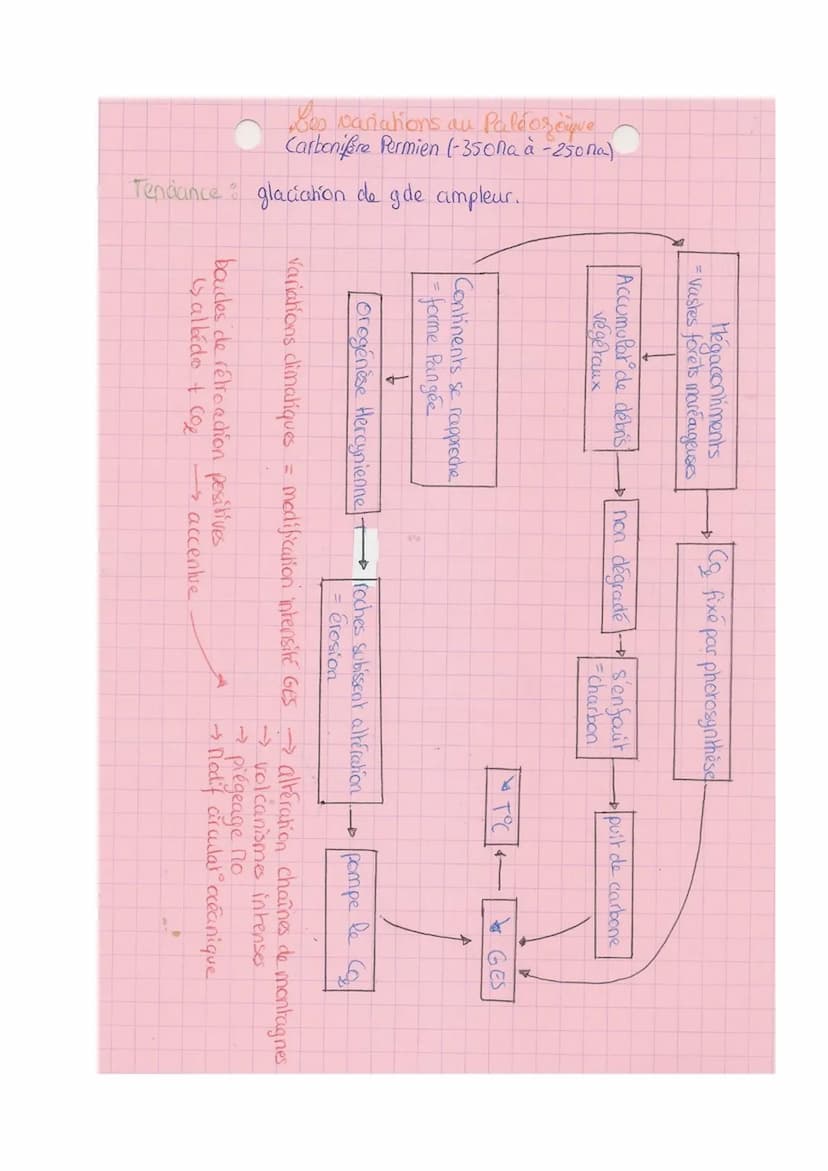 Les variations au Paléozoïque
Carbonifère Permien (-350Ma à -250Ma)
Tendance : glaciation de gde ampleur.
Mégacontinents
= vastes forêts marécageuses
CO2 fixé par photosynthèse
Accumulat° de débris
végétaux
non dégradé
s'enfouit
= charbon
puit de carbone
Continents se rapproche
= forme Pangée
↘ T°C
↘ GES
Orogénèse Hercynienne
roches subissent altération
= érosion
pompe le CO2
variations climatiques = modification intensité GES → altération chaînes de montagnes
→ volcanisme intenses
→ piégeage MO
→ Modif circulat° océanique
boucles de rétroaction positives
↳ albédo + CO2 → accentue